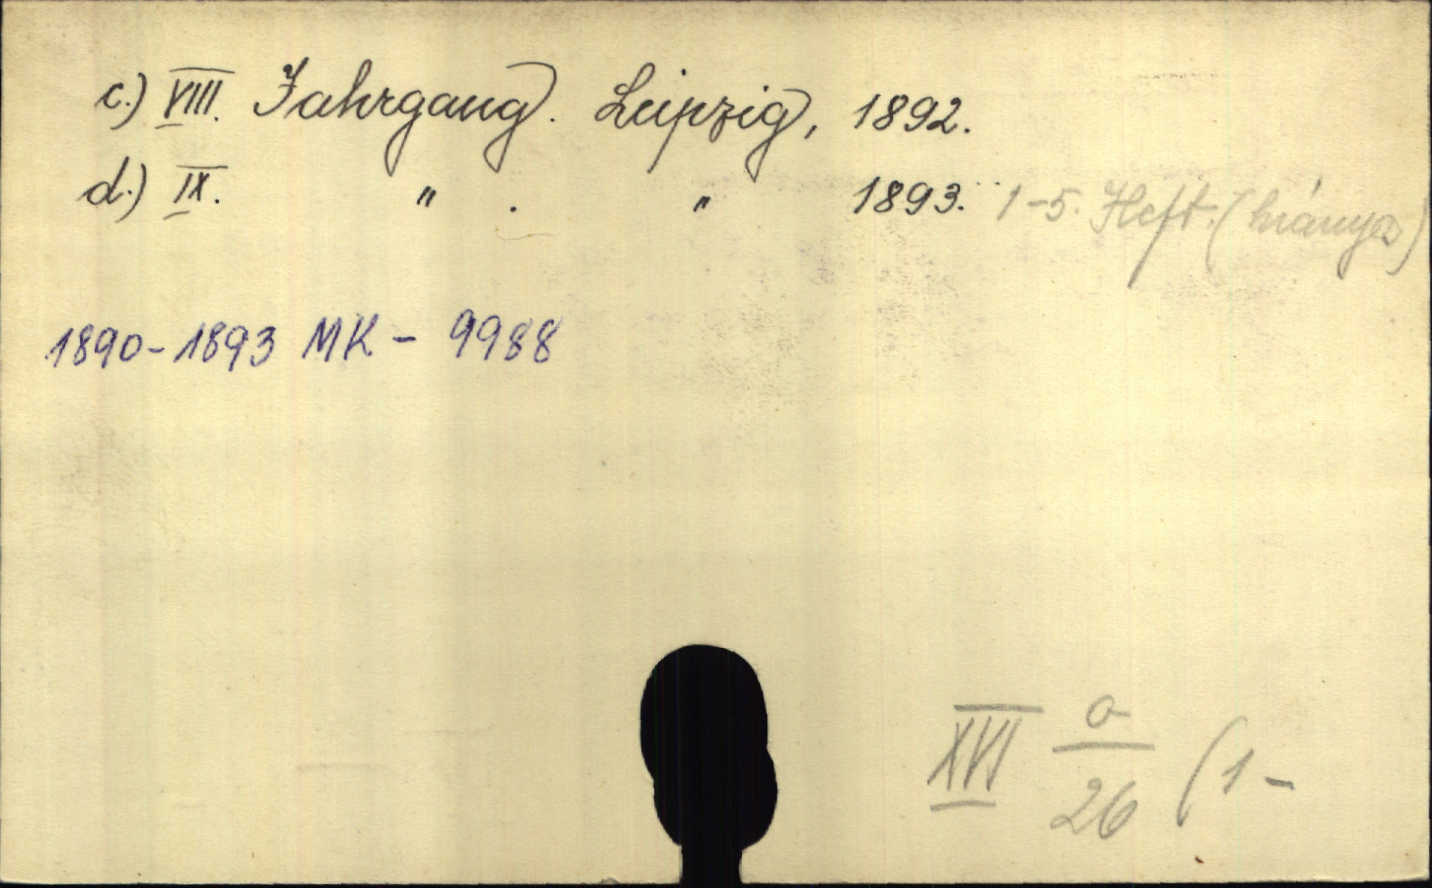 c.) VIII. Jahrgang. Leipzig, 1892.
d.) IX. " . " 1893. 1-5. Heft. (hiányos)
1890-1893 MK - 9988
XVI a/26 (1-